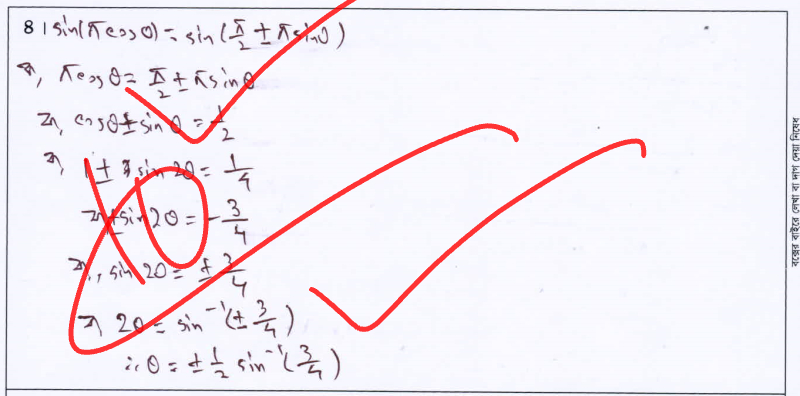 8। sin(π cos θ) = sin (π/2 ± π sin θ)
বা, π cos θ = π/2 ± π sin θ
বা, cos θ ± sin θ = 1/2
বা, 1 ± sin 2θ = 1/4
বা, ± sin 2θ = - 3/4
বা, sin 2θ = ± 3/4
বা, 2θ = sin⁻¹ (± 3/4)
∴ θ = ± 1/2 sin⁻¹ (3/4)
10
বক্সের বাইরে লেখা বা দাগ দেয়া নিষেধ